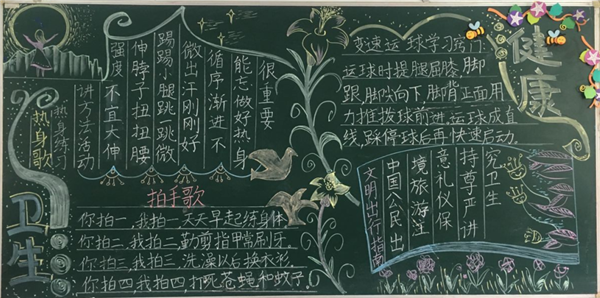 热身歌
热身练习
讲方法活动
强度不宜大伸
伸脖子扭扭腰
踢踢小腿跳跳微
微出汗刚刚好
循序渐进不
能急做好热身
很重要
卫生
拍手歌
你拍一,我拍一,天天早起练身体.
你拍二,我拍二,勤剪指甲常刷牙.
你拍三,我拍三,洗澡以后换衣衫.
你拍四我拍四打死苍蝇和蚊子.
健康
变速运球学习窍门:
运球时提腿屈膝,脚
跟,脚尖向下,脚背正面用
力推拨球前进运球成直
线,踩停球后再快速启动.
文明出行指南
中国公民出
境旅游注
意礼仪保
持尊严讲
究卫生